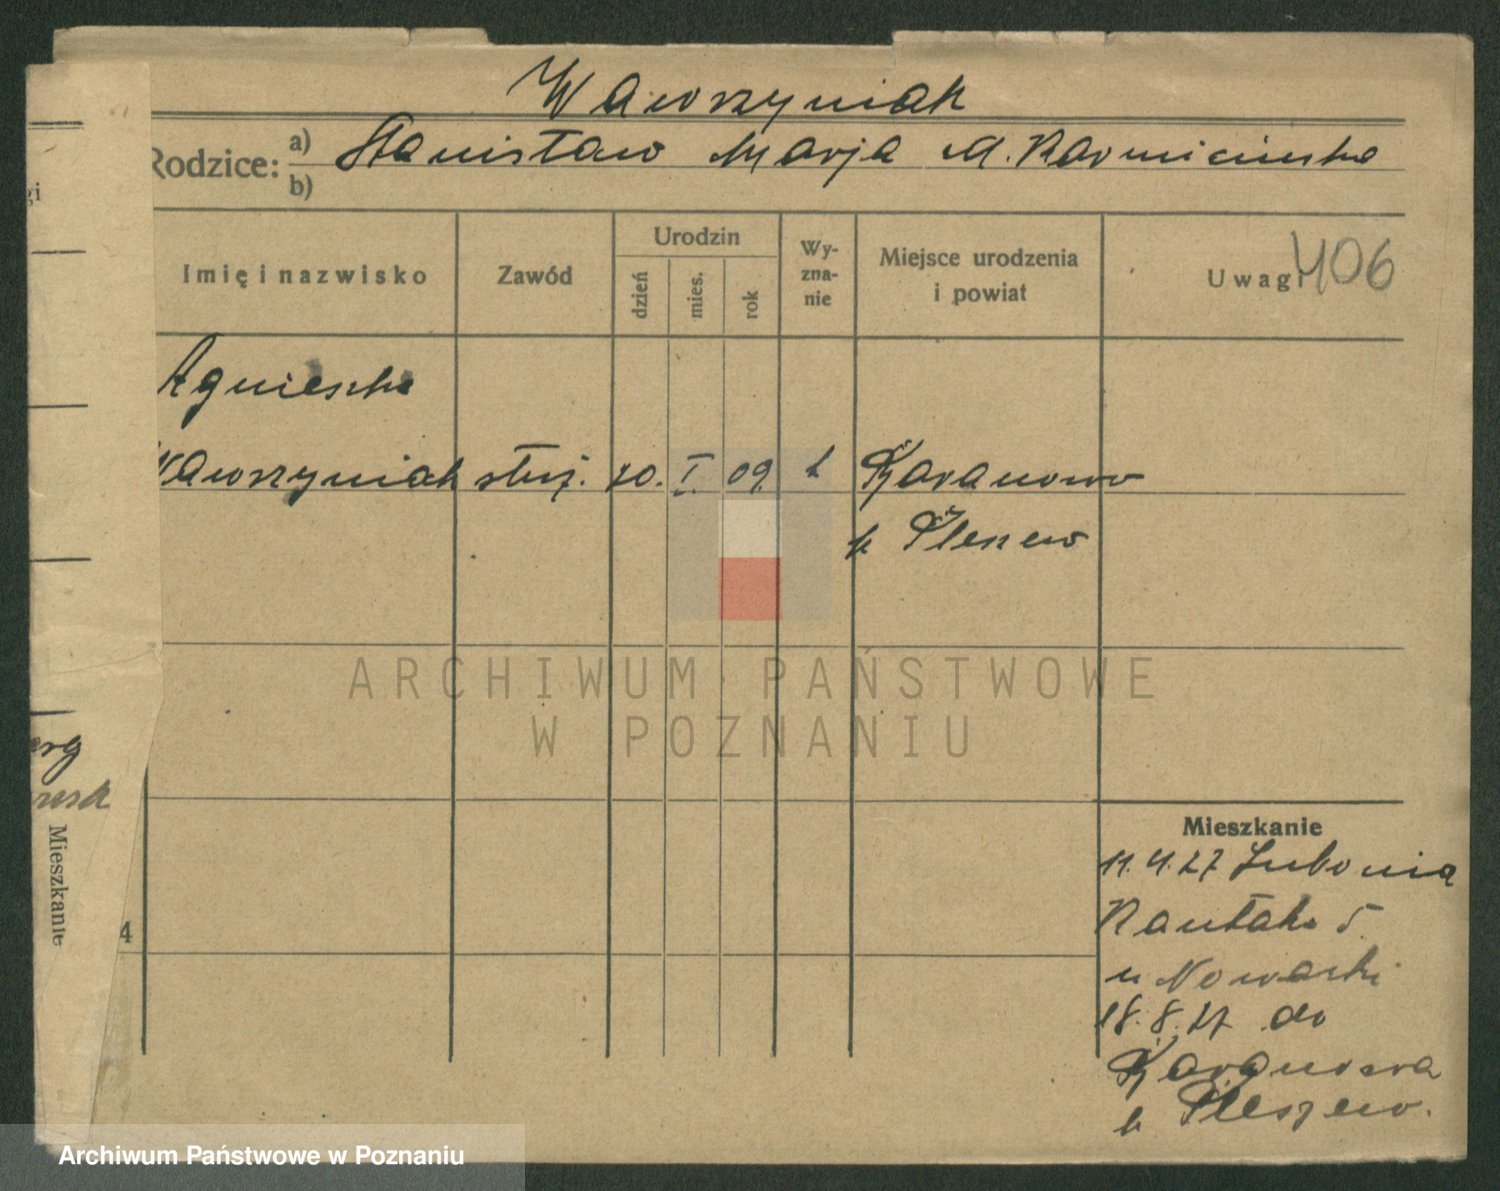 Wawrzyniak
Rodzice: a) Stanisław Marja
b)
Imię i nazwisko
Zawód
Urodzin
dzień
mies.
rok
Wy-
zna-
nie
Miejsce urodzenia
i powiat
Uwagi 406
Agnieszka
Wawrzyniak służ. 20. I. 09.
p. Pleszew
erg
Mieszkanie
4
Mieszkanie
11.4.27 Lubonia
5.
u Nowacki
18.8.27 do
p. Pleszew.
ARCHIWUM PAŃSTWOWE
W POZNANIU
Archiwum Państwowe w Poznaniu